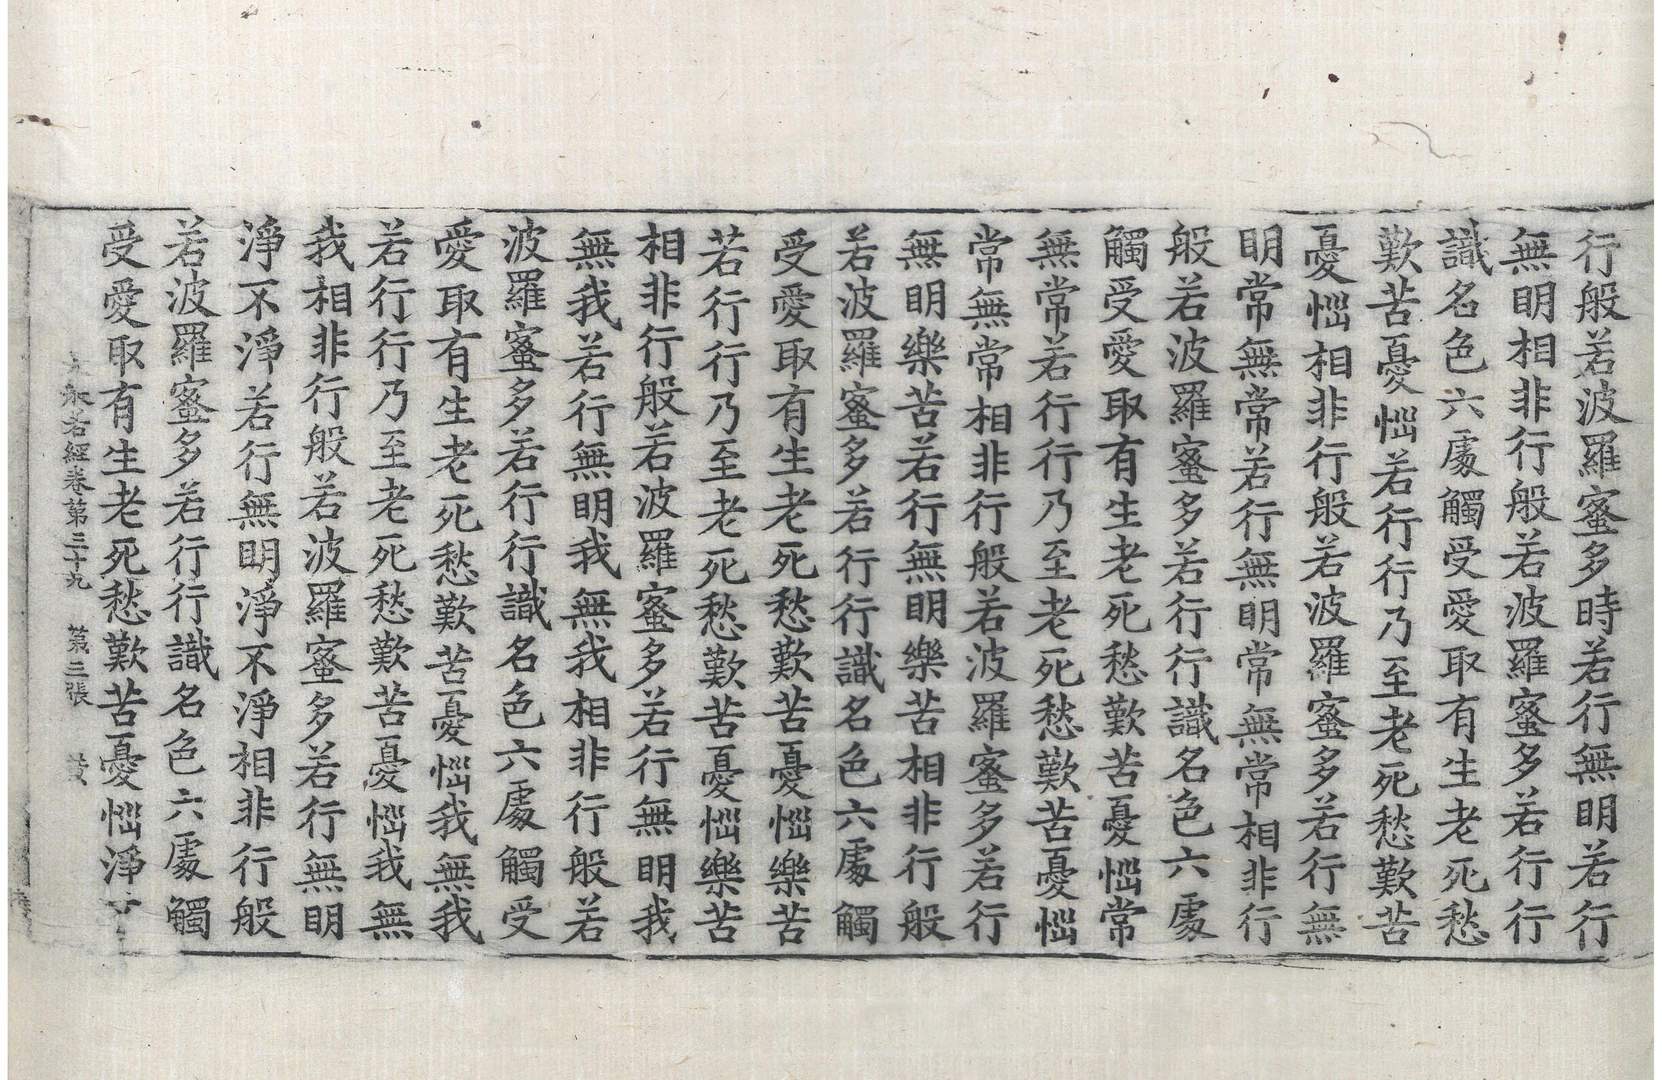 行般若波羅蜜多時若行無明若行
無明相非行般若波羅蜜多若行行
識名色六處觸受愛取有生老死愁
歎苦憂惱若行行乃至老死愁歎苦
憂惱相非行般若波羅蜜多若行無
明常無常若行無明常無常相非行
般若波羅蜜多若行行識名色六處
觸受愛取有生老死愁歎苦憂惱常
無常若行行乃至老死愁歎苦憂惱
常無常相非行般若波羅蜜多若行
無明樂苦若行無明樂苦相非行般
若波羅蜜多若行行識名色六處觸
受愛取有生老死愁歎苦憂惱樂苦
若行行乃至老死愁歎苦憂惱樂苦
相非行般若波羅蜜多若行無明我
無我若行無明我無我相非行般若
波羅蜜多若行行識名色六處觸受
愛取有生老死愁歎苦憂惱我無我
若行行乃至老死愁歎苦憂惱我無
我相非行般若波羅蜜多若行無明
淨不淨若行無明淨不淨相非行般
若波羅蜜多若行行識名色六處觸
受愛取有生老死愁歎苦憂惱淨
大般若經卷第三十九 第二張 黃